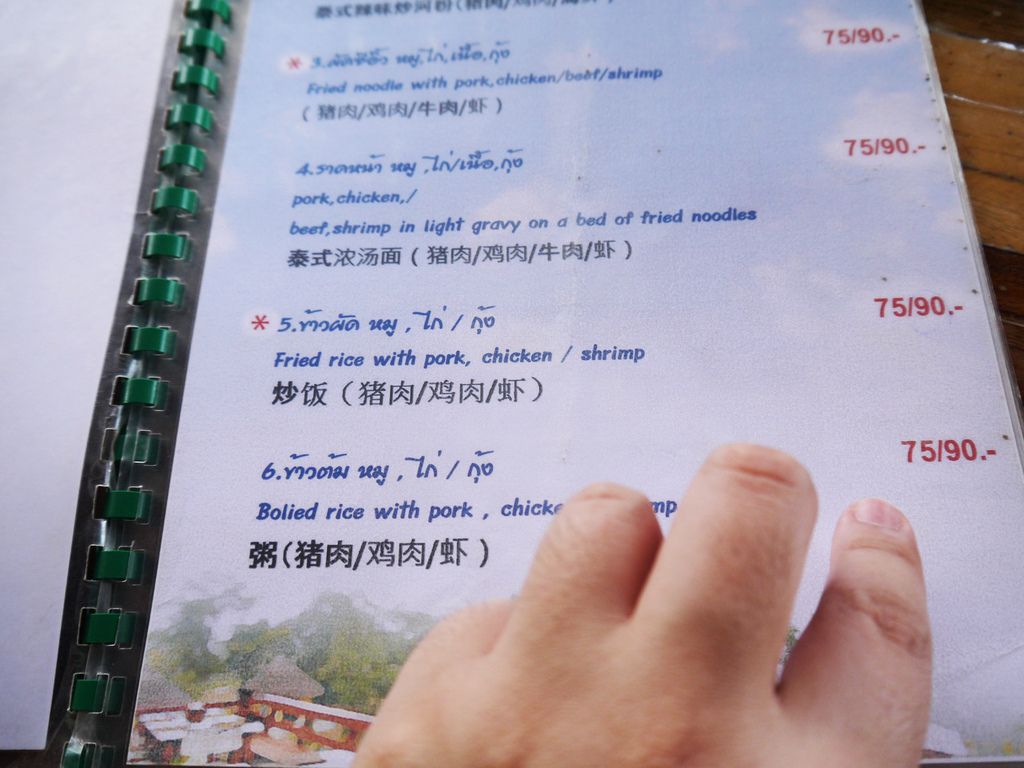 泰式辣味炒河粉(猪肉/鸡肉/海鲜)
75/90.-
* 3.ผัดซีอิ๊ว หมู,ไก่,เนื้อ,กุ้ง
Fried noodle with pork,chicken/beef/shrimp
(猪肉/鸡肉/牛肉/虾)
75/90.-
4.ราดหน้า หมู,ไก่/เนื้อ,กุ้ง
pork,chicken,/
beef,shrimp in light gravy on a bed of fried noodles
泰式浓汤面(猪肉/鸡肉/牛肉/虾)
75/90.-
* 5.ข้าวผัด หมู , ไก่ / กุ้ง
Fried rice with pork, chicken / shrimp
炒饭(猪肉/鸡肉/虾)
75/90.-
6.ข้าวต้ม หมู , ไก่ / กุ้ง
Bolied rice with pork ,
粥(猪肉/鸡肉/虾)